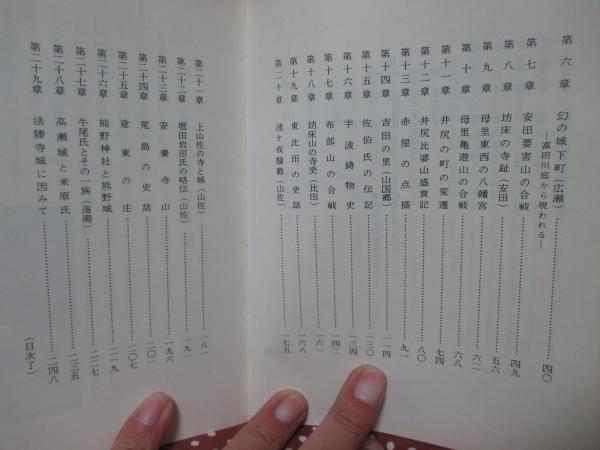 第六章　幻の城下町（広瀬）……四〇
―富田川底から現われる―
第七章　安田要害山の合戦……四九
第八章　坊床の寺趾（安田）……五六
第九章　母里東西の八幡宮……六二
第十章　母里亀遊山の合戦……六八
第十一章　井尻の町の変遷……七四
第十二章　井尻比婆山盛衰記……八〇
第十三章　赤屋の点描……九一
第十四章　吉田の里（山国郷）……一一四
第十五章　佐伯氏の伝記……一三〇
第十六章　宇波鋳物史……一三四
第十七章　布部山の合戦……一四二
第十八章　坊床山の寺史（比田）……一六一
第十九章　東比田の史話……一六八
第二十章　池ヶ成騒動（山佐）……一七五
第二十一章　上山佐の寺と城（山佐）……一八一
第二十二章　堀田岩田氏の略伝（山佐）……一九一
第二十三章　安養寺山……一九六
第二十四章　荒島の史話……二〇一
第二十五章　意東の庄……二〇七
第二十六章　熊野神社と熊野城……二一九
第二十七章　牛尾氏とその一族（海潮）……二二七
第二十八章　高瀬城と米原氏……二三五
第二十九章　法勝寺城に因みて……二四八
（目次了）